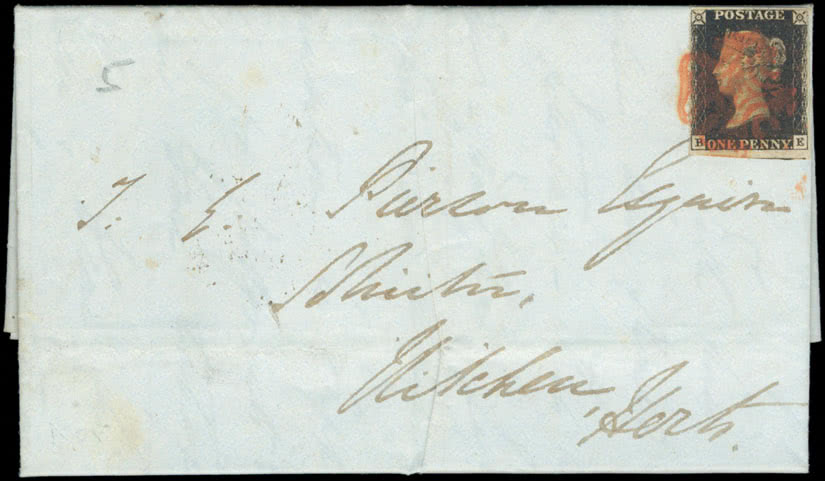 POSTAGE
B ONE PENNY E
5
J. E. Pierson Esquire
Hitchen, Herts.